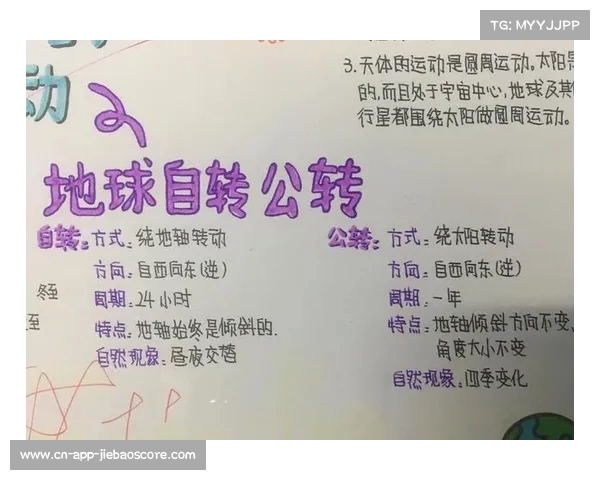 TG: MYYJJPP
动
3.天体的运动是圆周运动。太阳是
的,而且处于宇宙中心,地球及其
行星都围绕太阳做圆周运动。
地球自转公转
自转: 方式: 绕地轴转动
方向: 自西向东(逆)
周期: 24小时
特点: 地轴始终是倾斜的.
自然现象: 昼夜交替
公转: 方式: 绕太阳转动
方向: 自西向东(逆)
周期: 一年
特点: 地轴倾斜方向不变,
角度大小不变
自然现象: 四季变化
冬至
至
www.cn-app-jiebaoscore.com